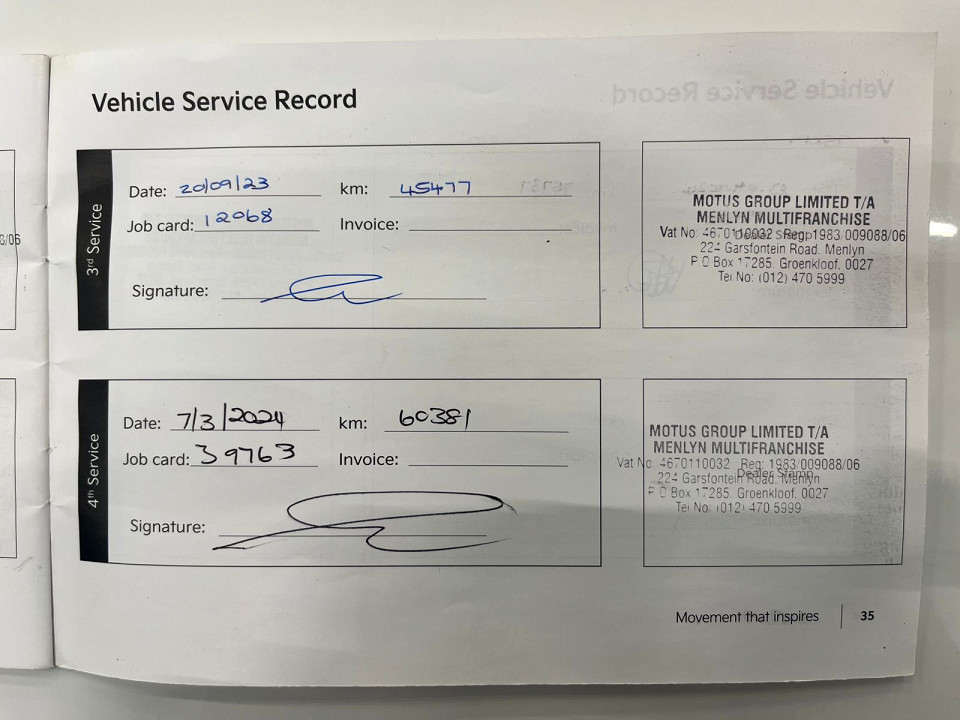 Vehicle Service Record
3rd Service
Date: 20/09/23 km: 45477
Job card: 12068 Invoice:
Signature:
MOTUS GROUP LIMITED T/A
MENLYN MULTIFRANCHISE
Vat No: 4670110032 Reg: 1983/009088/06
Dealer Stamp
224 Garsfontein Road. Menlyn
P O Box 17285. Groenkloof, 0027
Tel No: (012) 470 5999
4th Service
Date: 7/3/2024 km: 60381
Job card: 39763 Invoice:
Signature:
MOTUS GROUP LIMITED T/A
MENLYN MULTIFRANCHISE
Vat No: 4670110032 Reg: 1983/009088/06
Dealer Stamp
224 Garsfontein Road. Menlyn
P O Box 17285. Groenkloof, 0027
Tel No: (012) 470 5999
Movement that inspires 35
8/06